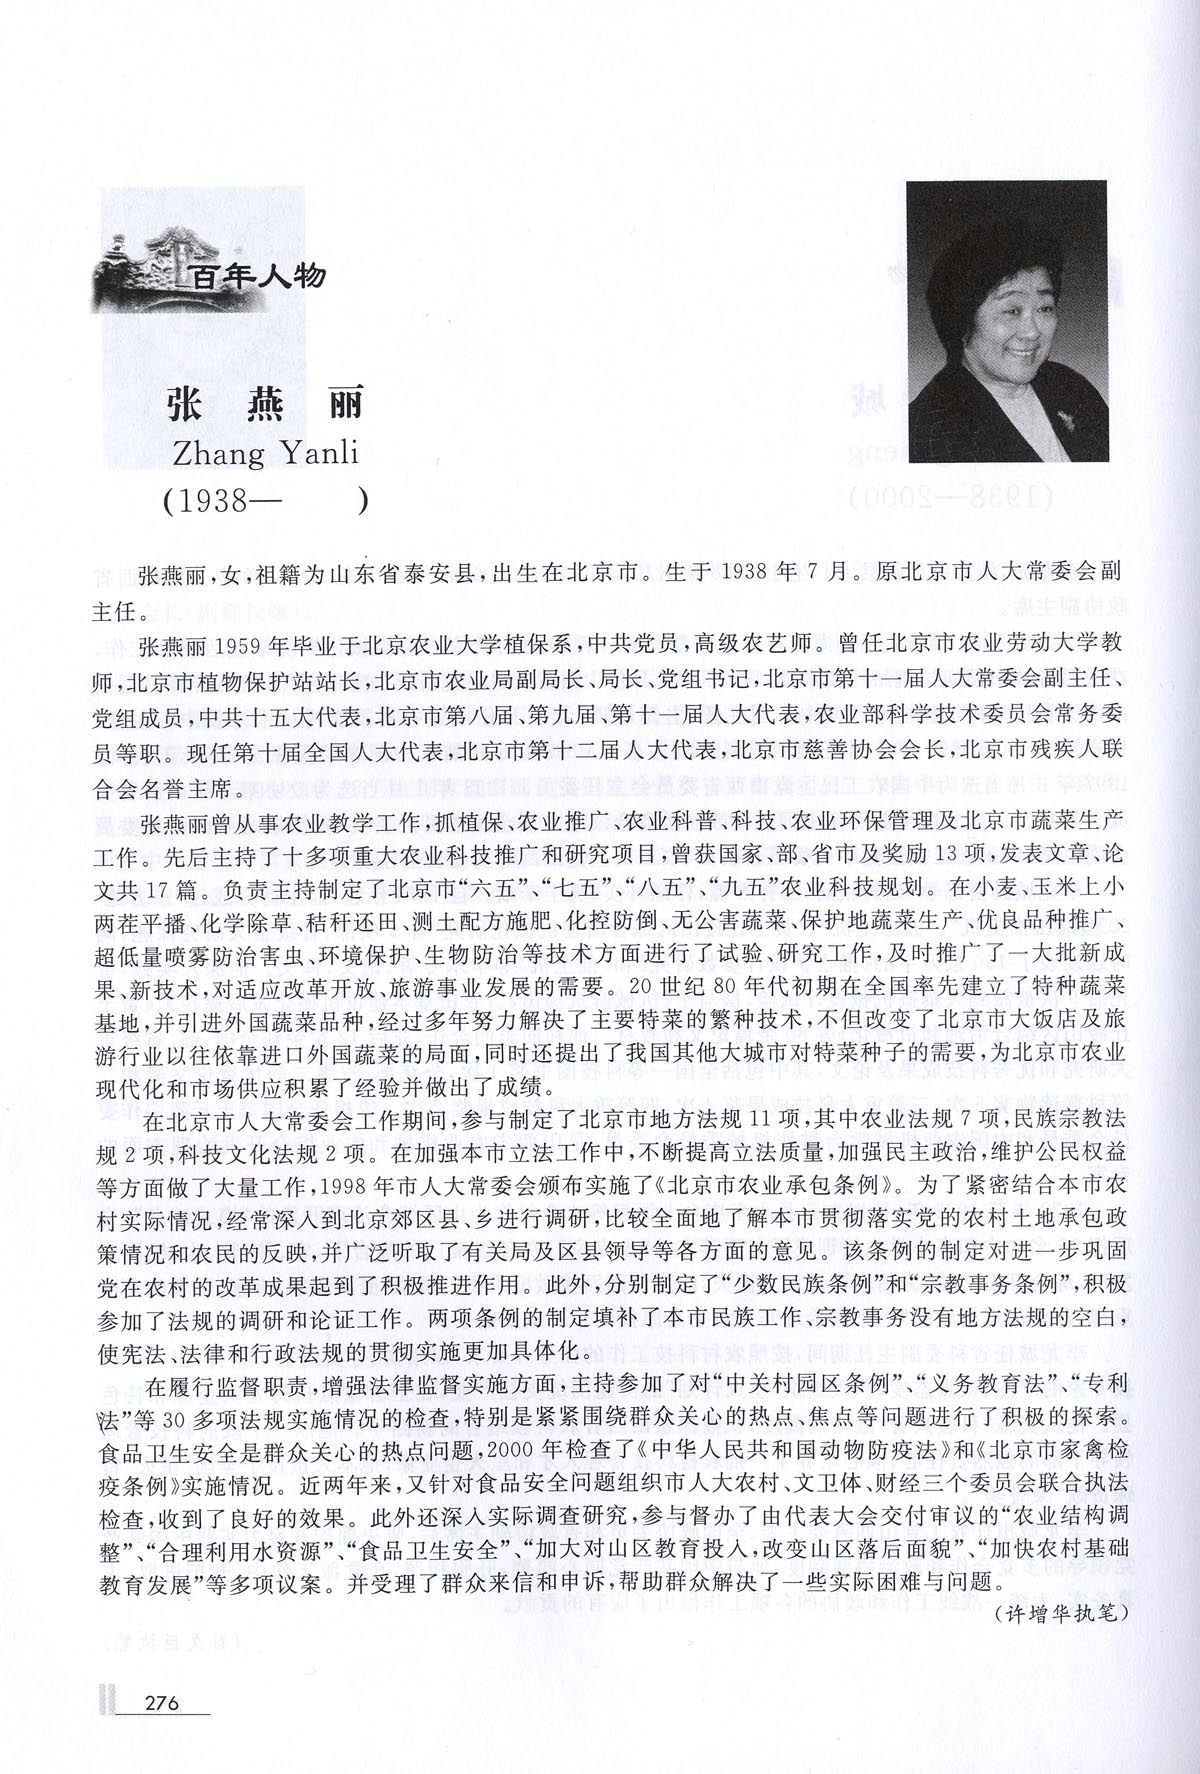 百年人物
张燕丽
Zhang Yanli
(1938— )
张燕丽,女,祖籍为山东省泰安县,出生在北京市。生于 1938 年 7 月。原北京市人大常委会副
主任。
张燕丽 1959 年毕业于北京农业大学植保系,中共党员,高级农艺师。曾任北京市农业劳动大学教
师,北京市植物保护站站长,北京市农业局副局长、局长、党组书记,北京市第十一届人大常委会副主任、
党组成员,中共十五大代表,北京市第八届、第九届、第十一届人大代表,农业部科学技术委员会常务委
员等职。现任第十届全国人大代表,北京市第十二届人大代表,北京市慈善协会会长,北京市残疾人联
合会名誉主席。
张燕丽曾从事农业教学工作,抓植保、农业推广、农业科普、科技、农业环保管理及北京市蔬菜生产
工作。先后主持了十多项重大农业科技推广和研究项目,曾获国家、部、省市及奖励 13 项,发表文章、论
文共 17 篇。负责主持制定了北京市“六五”、“七五”、“八五”、“九五”农业科技规划。在小麦、玉米上小
两茬平播、化学除草、秸秆还田、测土配方施肥、化控防倒、无公害蔬菜、保护地蔬菜生产、优良品种推广、
超低量喷雾防治害虫、环境保护、生物防治等技术方面进行了试验、研究工作,及时推广了一大批新成
果、新技术,对适应改革开放、旅游事业发展的需要。20 世纪 80 年代初期在全国率先建立了特种蔬菜
基地,并引进外国蔬菜品种,经过多年努力解决了主要特菜的繁种技术,不但改变了北京市大饭店及旅
游行业以往依靠进口外国蔬菜的局面,同时还提出了我国其他大城市对特菜种子的需要,为北京市农业
现代化和市场供应积累了经验并做出了成绩。
在北京市人大常委会工作期间,参与制定了北京市地方法规 11 项,其中农业法规 7 项,民族宗教法
规 2 项,科技文化法规 2 项。在加强本市立法工作中,不断提高立法质量,加强民主政治,维护公民权益
等方面做了大量工作,1998 年市人大常委会颁布实施了《北京市农业承包条例》。为了紧密结合本市农
村实际情况,经常深入到北京郊区县、乡进行调研,比较全面地了解本市贯彻落实党的农村土地承包政
策情况和农民的反映,并广泛听取了有关局及区县领导等各方面的意见。该条例的制定对进一步巩固
党在农村的改革成果起到了积极推进作用。此外,分别制定了“少数民族条例”和“宗教事务条例”,积极
参加了法规的调研和论证工作。两项条例的制定填补了本市民族工作、宗教事务没有地方法规的空白,
使宪法、法律和行政法规的贯彻实施更加具体化。
在履行监督职责,增强法律监督实施方面,主持参加了对“中关村园区条例”、“义务教育法”、“专利
法”等 30 多项法规实施情况的检查,特别是紧紧围绕群众关心的热点、焦点等问题进行了积极的探索。
食品卫生安全是群众关心的热点问题,2000 年检查了《中华人民共和国动物防疫法》和《北京市家禽检
疫条例》实施情况。近两年来,又针对食品安全问题组织市人大农村、文卫体、财经三个委员会联合执法
检查,收到了良好的效果。此外还深入实际调查研究,参与督办了由代表大会交付审议的“农业结构调
整”、“合理利用水资源”、“食品卫生安全”、“加大对山区教育投入,改变山区落后面貌”、“加快农村基础
教育发展”等多项议案。并受理了群众来信和申诉,帮助群众解决了一些实际困难与问题。
(许增华执笔)
276